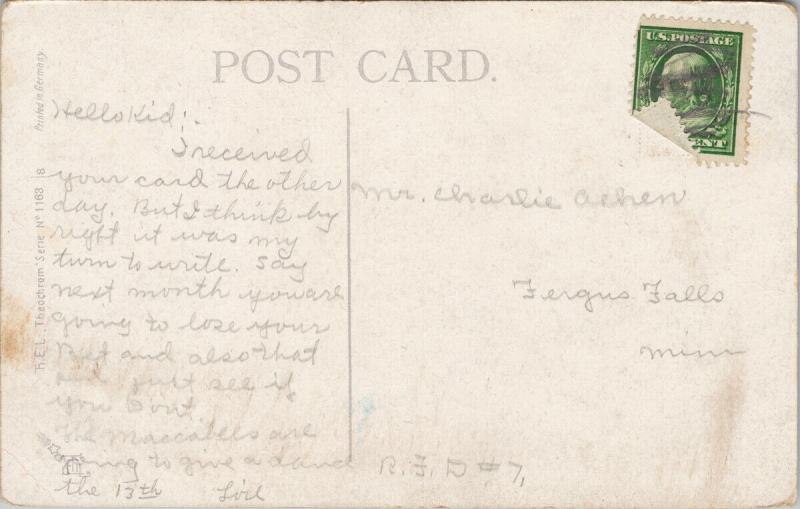 POST CARD.
U.S. POSTAGE
Printed in Germany
H.E.L. Theochrom Serie Nº 1168 18
Hello Kid:.
I received
your card the other
day. But I think by
right it was my
turn to write. Say
next month you are
going to lose your
Bet and also that
just see if
you Don't.
The Maccabees are
going to give a dance
the 13th
Mr. Charlie Achen
Fergus Falls
Minn
R.F.D #7,